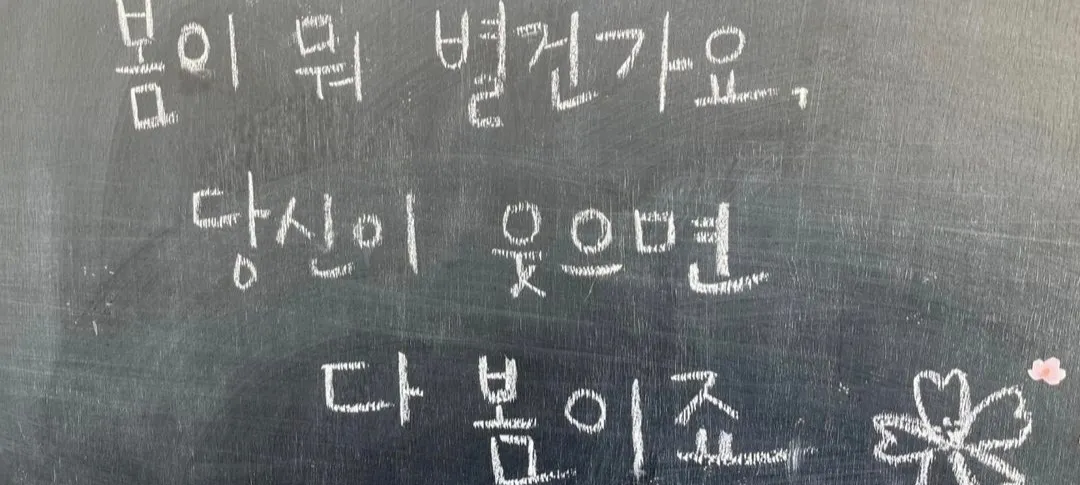 봄이 뭐 별건가요,
당신이 웃으면
다 봄이죠